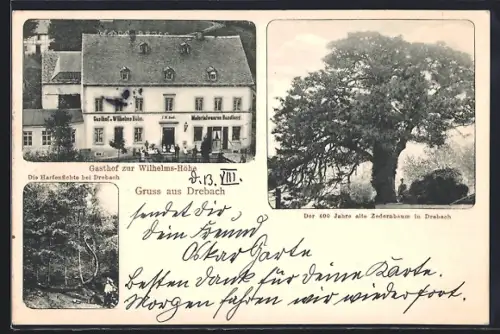 Gasthof z. Wilhelms-Höhe.
Materialwaaren Handlung.
Gasthof zur Wilhelms-Höhe
Die Harfenfichte bei Drebach
Der 600 Jahre alte Zedernbaum in Drebach
d. 13. VIII.
Gruss aus Drebach
sendet Dir,
Dein Freund
Oskar Garte
Besten Dank für deine Karte.
Morgen fahren wir wieder fort.